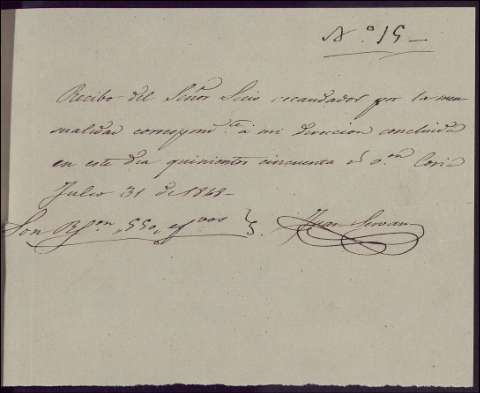 N.º 15
Recibo del Señor recaudador por la men
sualidad correspond.te a mi direccion concluida
en este dia quinientos cincuenta r.s v.on
Julio 31 de 1848
Son R.s von, 550,
Juan